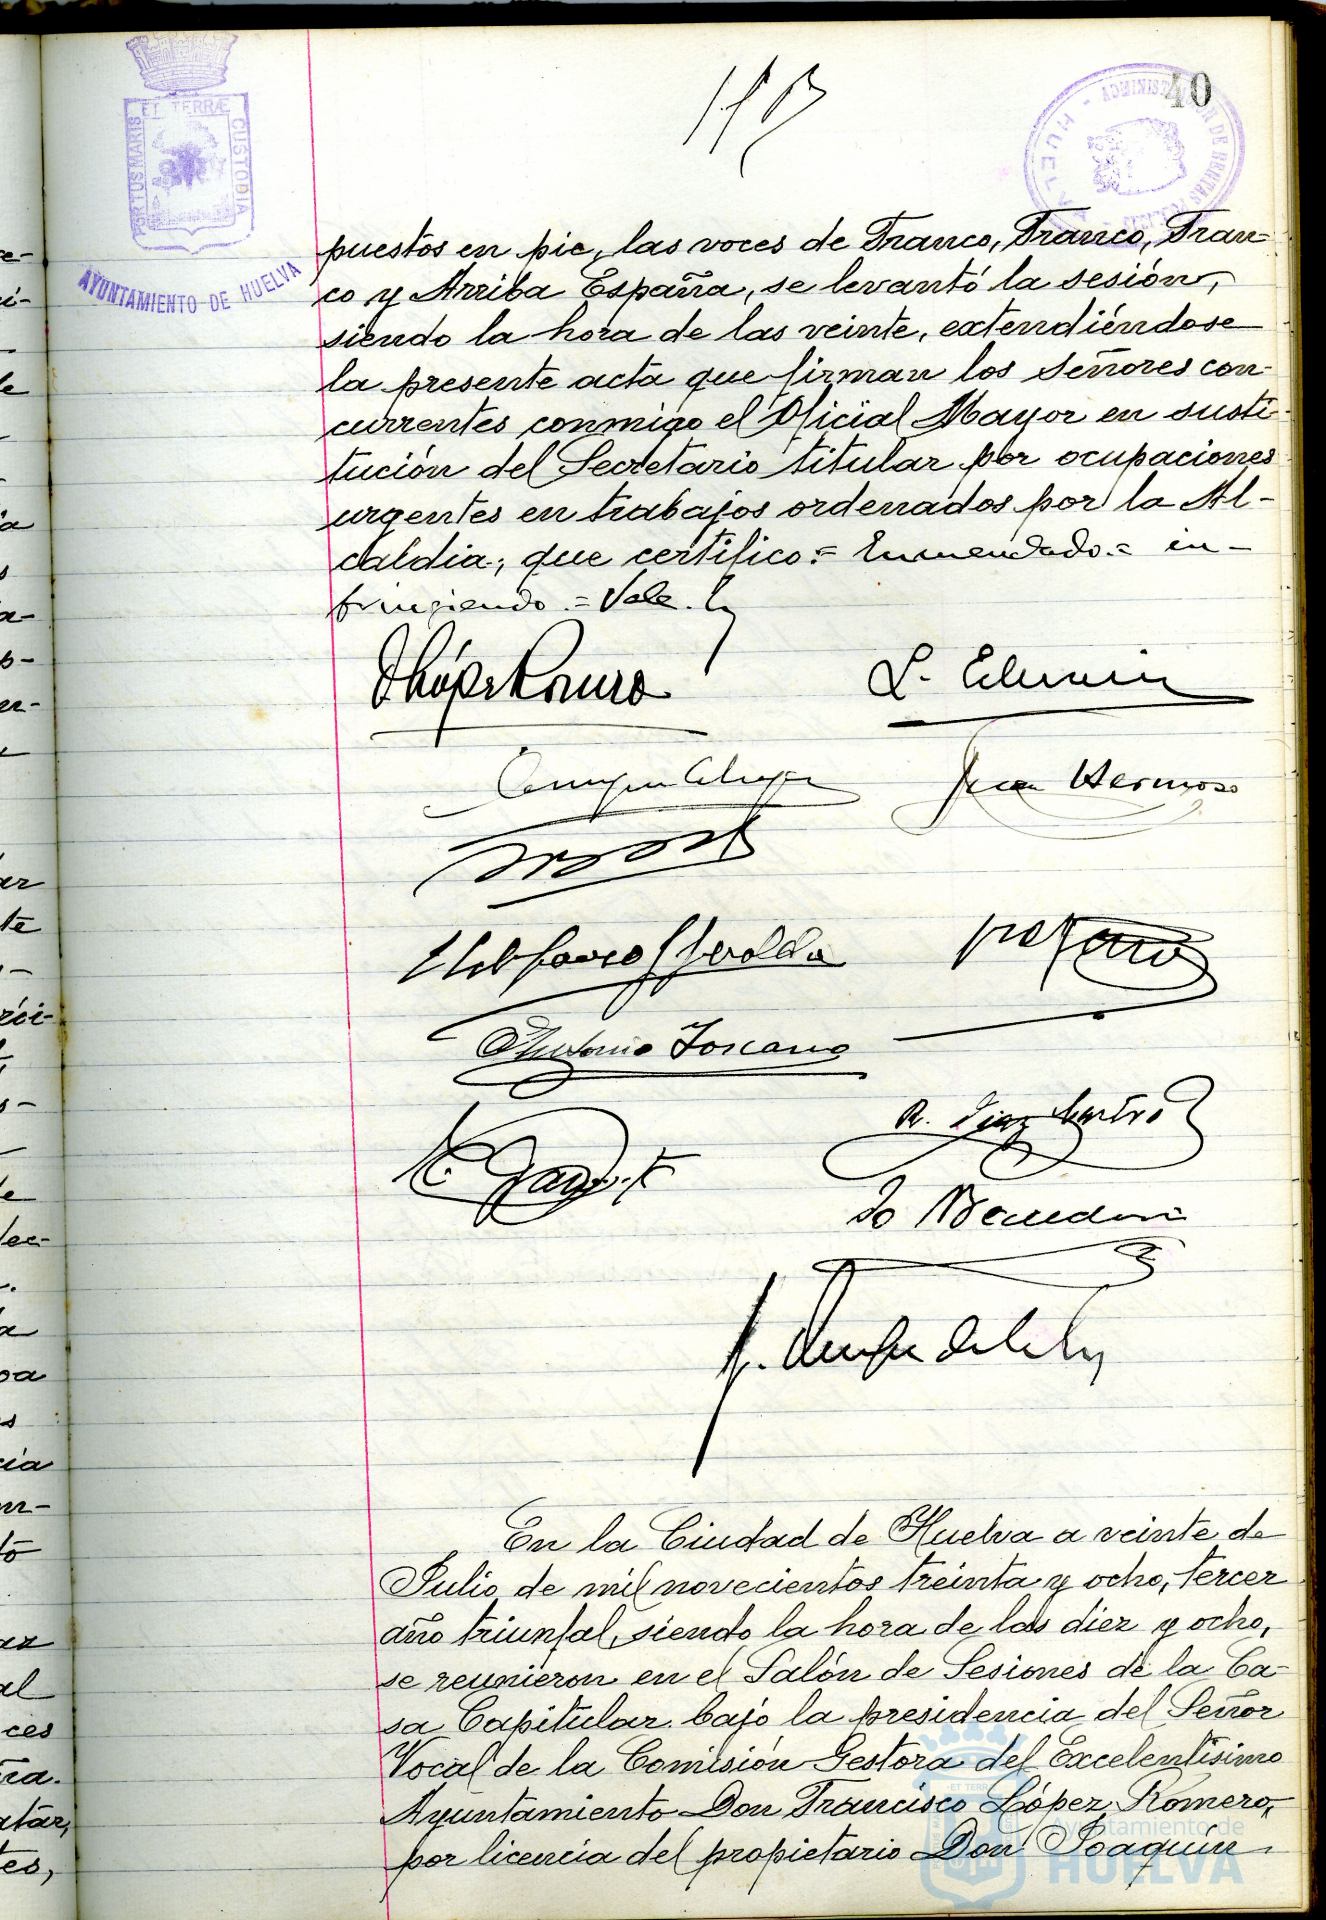 40
PORTUS MARIS ET TERRÆ CUSTODIA
AYUNTAMIENTO DE HUELVA
ADMINISTRACIÓN DE RENTAS
HUELVA
puestos en pie, las voces de Franco, Franco, Fran-
co y Arriba España, se levantó la sesión,
siendo la hora de las veinte, extendiéndose
la presente acta que firman los Señores con-
currentes conmigo el Oficial Mayor en susti-
tución del Secretario titular por ocupaciones
urgentes en trabajos ordenados por la Al-
caldia, que certifico.= Enmendado.= in-
fringiendo.= Vale.
F López Romero
Juan Hermoso
Antonio Toscano
R. Diaz
En la Ciudad de Huelva a veinte de
Julio de mil novecientos treinta y ocho, tercer
año triunfal, siendo la hora de las diez y ocho,
se reunieron en el Salón de Sesiones de la Ca-
sa Capitular bajo la presidencia del Señor
Vocal de la Comisión Gestora del Excelentísimo
Ayuntamiento Don Francisco López Romero,
por licencia del propietario Don Joaquín
Ayuntamiento de
HUELVA